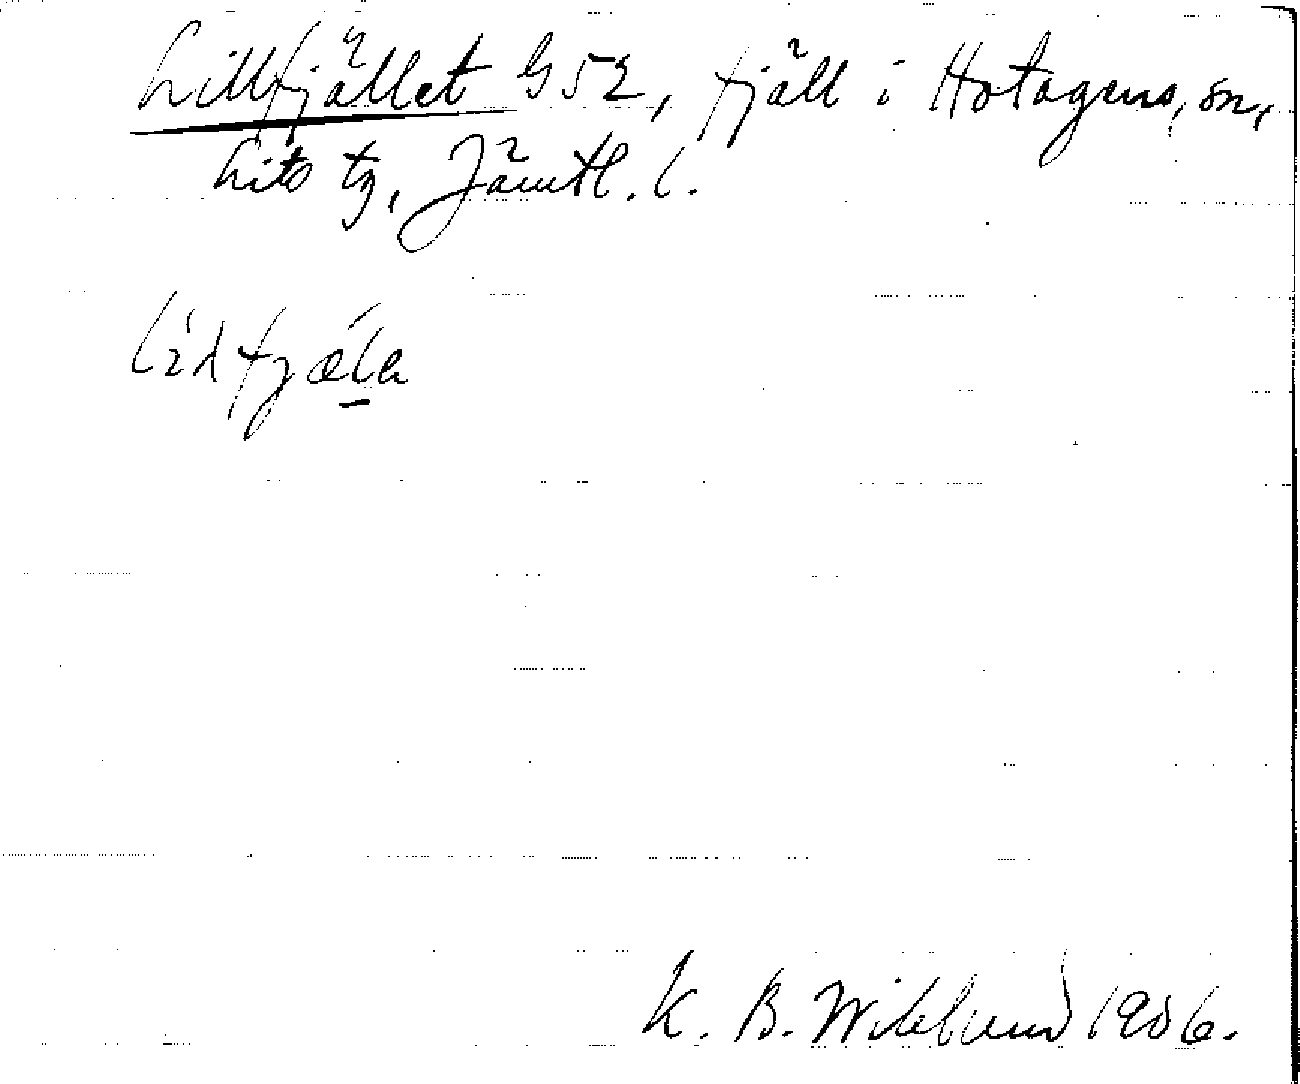 Lillfjället G52, fjäll i Hotagens, sn,
Lits tg, Jämtl. l.
K. B. Wiklund 1906.